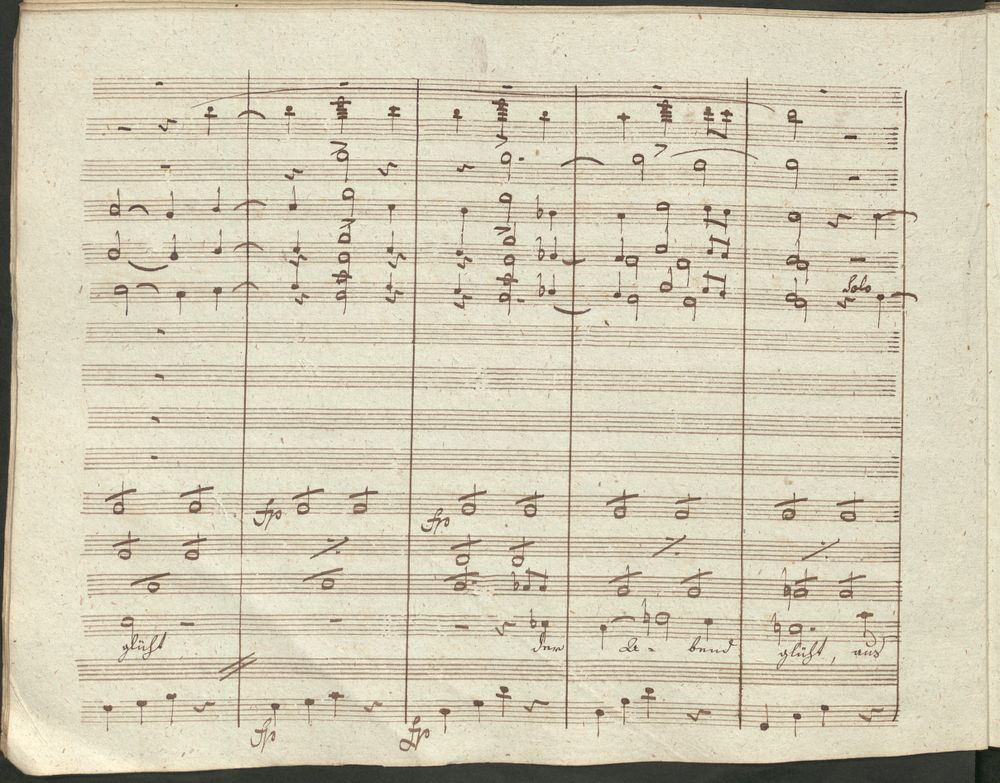 Solo
fp
fp
glüht
der A- bend glüht, aus
fp
fp